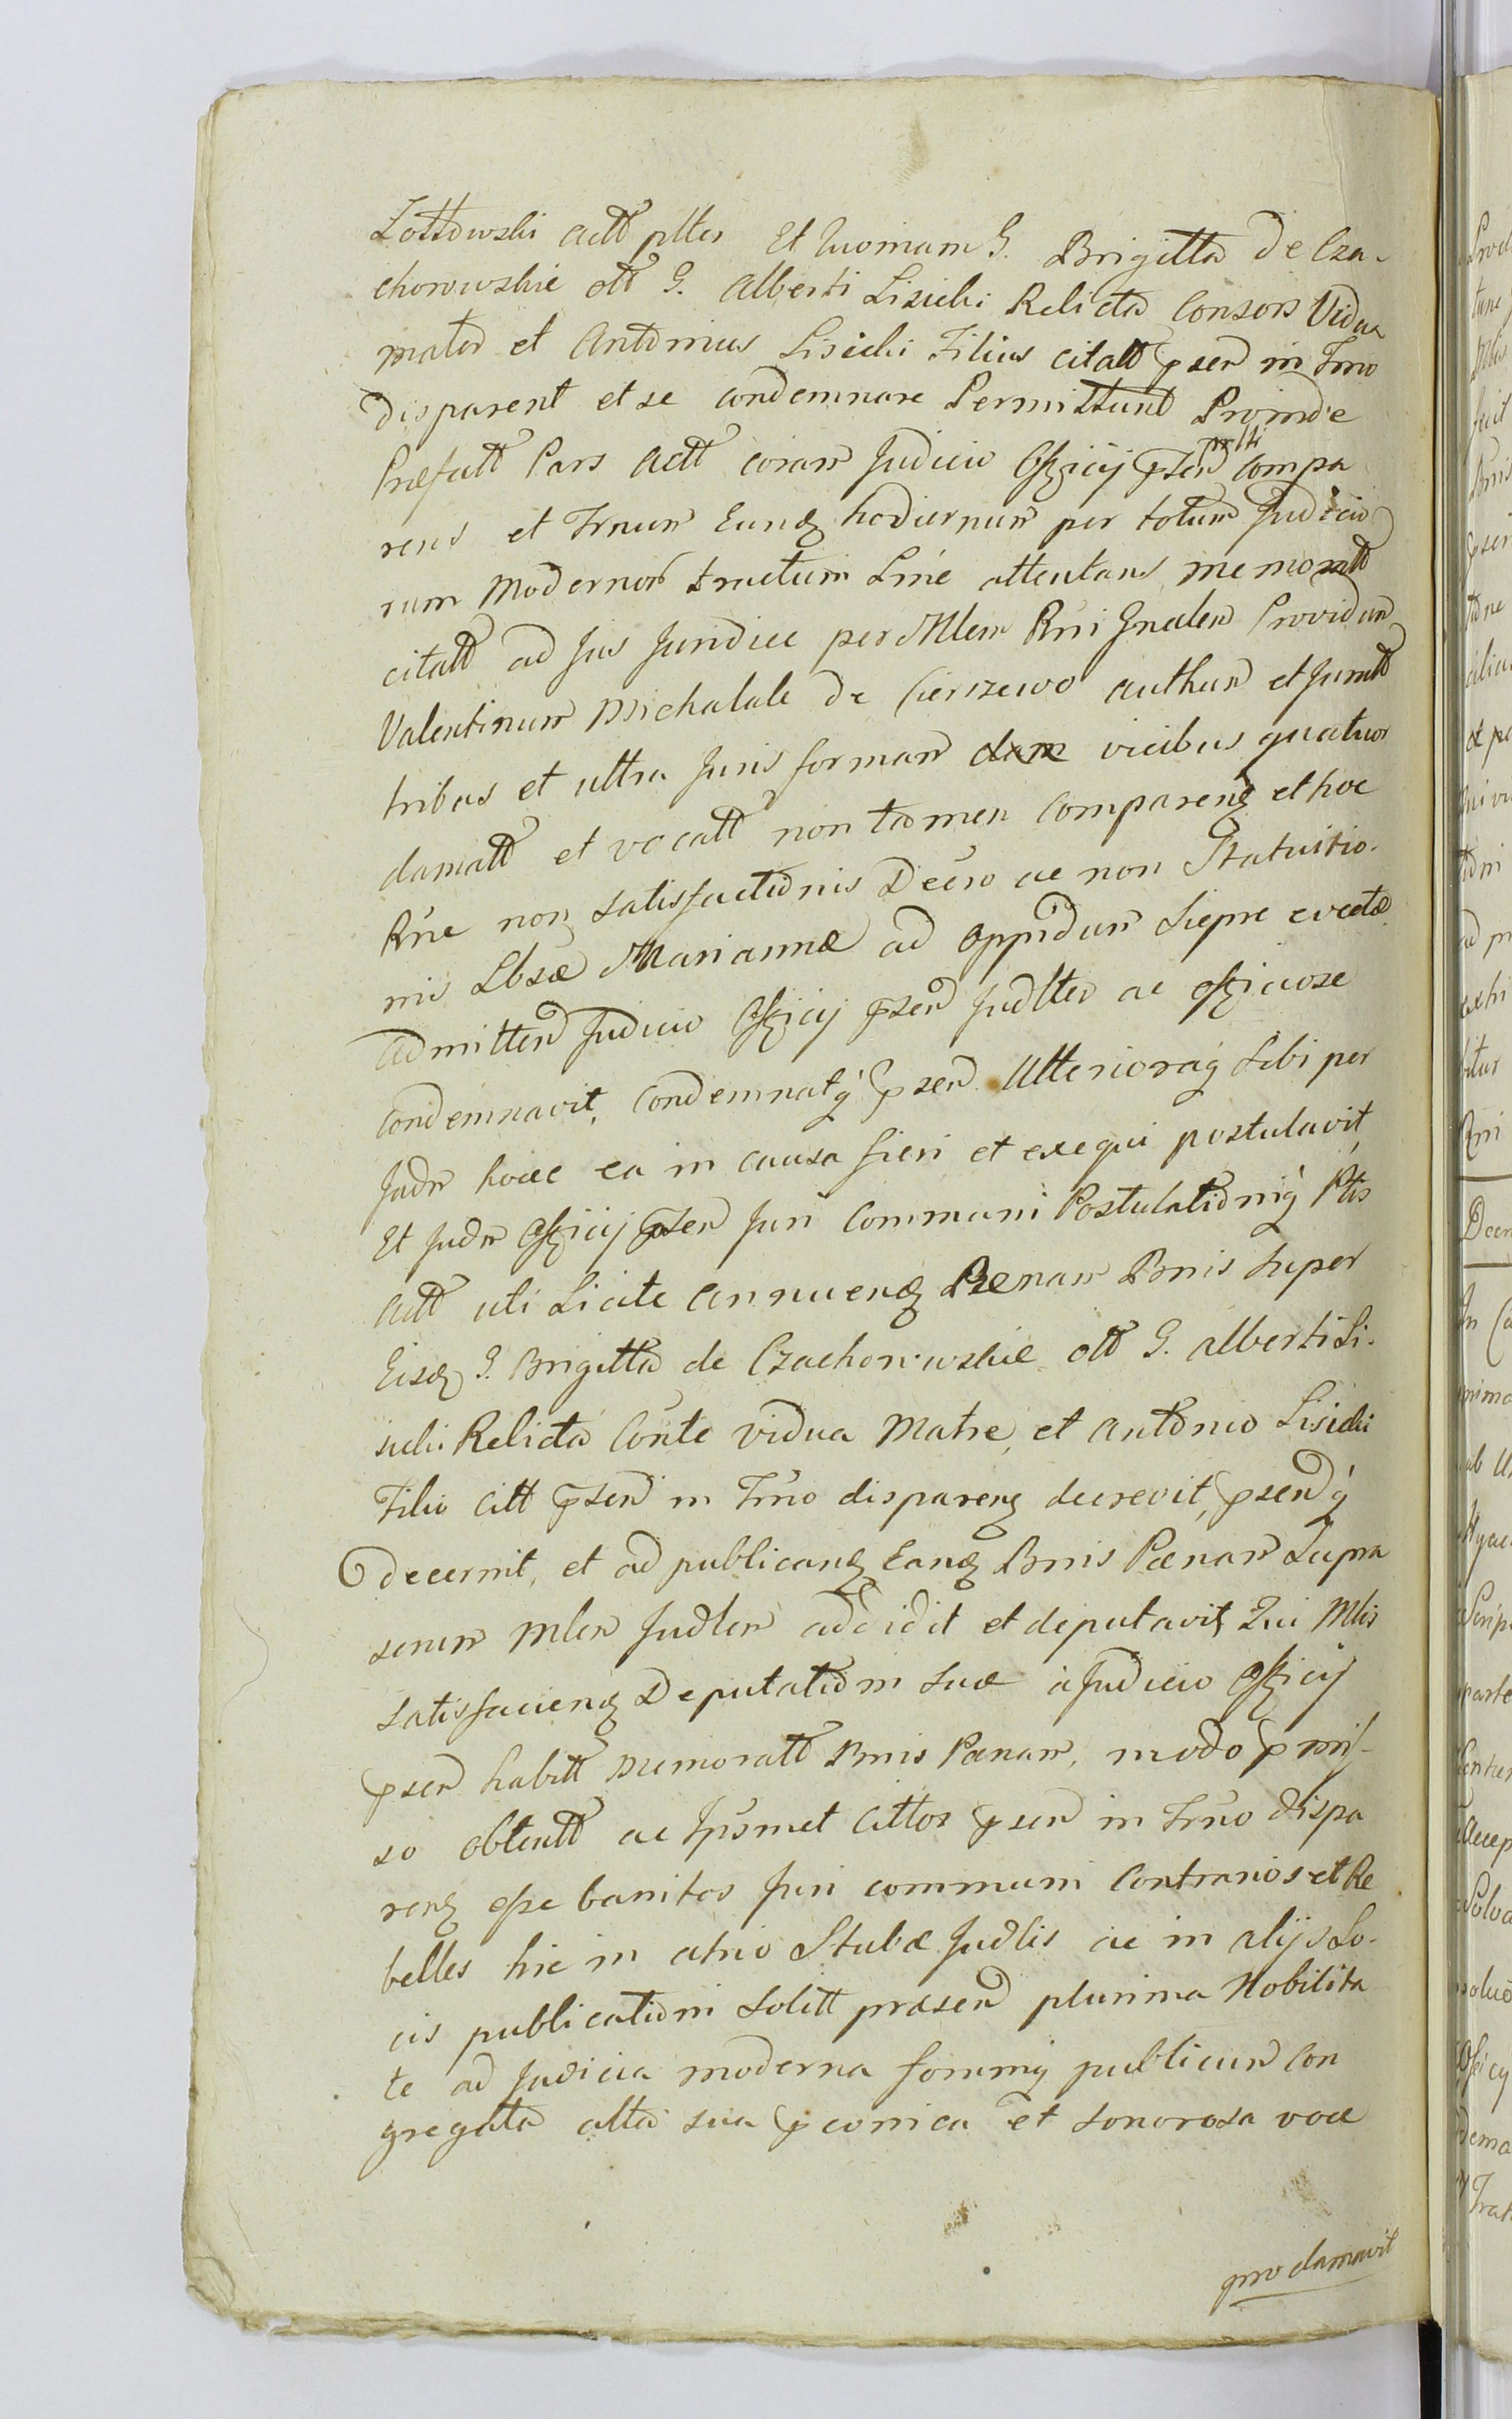 Zołtowski actt pltes Et Quoniam G. Brigitta de Cza-
chorowskie ott G. Alberti Lisiecki Relicta Consors Vidua
mater et Antonius Lisiecki Filius citatt psen in Trno
disparent et se condemnare Permittunt Proinde
Præfatt Pars Actt coram Judicio Officij psen plti Compa
rens et Trnum Eundq hodiernum per totum Judicio
rum Modernor tractum Line attentans memoratt
citatt ad Jus Juridice per Mlem Rni Gnalem Providum
Valentinum Michalak de Cierszewo authum et Juratt
tribus et ultra Juris formam vicibus quatuor
clamatt et vocatt non tamen Comparenq et hoc
Rne nonq satisfactionis Decro ac non Statuitio-
nis Lbsæ Mariannæ ad oppidum Siepre evectæ
admitten Judicio Officij psen Judlter ac officiose
Condemnavit, Condemnatq psen Ulterioraq Sibi per
Judm hocce ea in causa fieri et exequi postulavit,
Et Judm Officij psen Juri Communi Postulationiq Ptis
Actt uti Licite Annuenq Pænam Bnis super
Eisdq G. Brigitta de Czachorowskie ott G. Alberti Li-
siecki Relicta Conte vidua Matre, et Antonio Lisiecki
Filio citt psen in Trno disparenq decrevit, psenq
decernit, et ad publicandq Eandq Bnis Pœnam Supra
scrium Mlem Judlem addidit et deputavit Qui Mlis
satisfacienq Deputationi suæ a Judicio Officij
psen habitt memoratt Bnis Pœnam, modo pmis-
so obtentt ac Ipsmet Cittos psen in Trno dispa
renq esse banitos Juri communi Contrarios et Re
belles hic in atrio Stubæ Judlis ac in alijs Lo-
cis publicationi solitt præsen plurima Nobilita
te ad Judicia moderna forumq publicum Con
gregata alta sua pconica et sonorosa voce
proclamavit